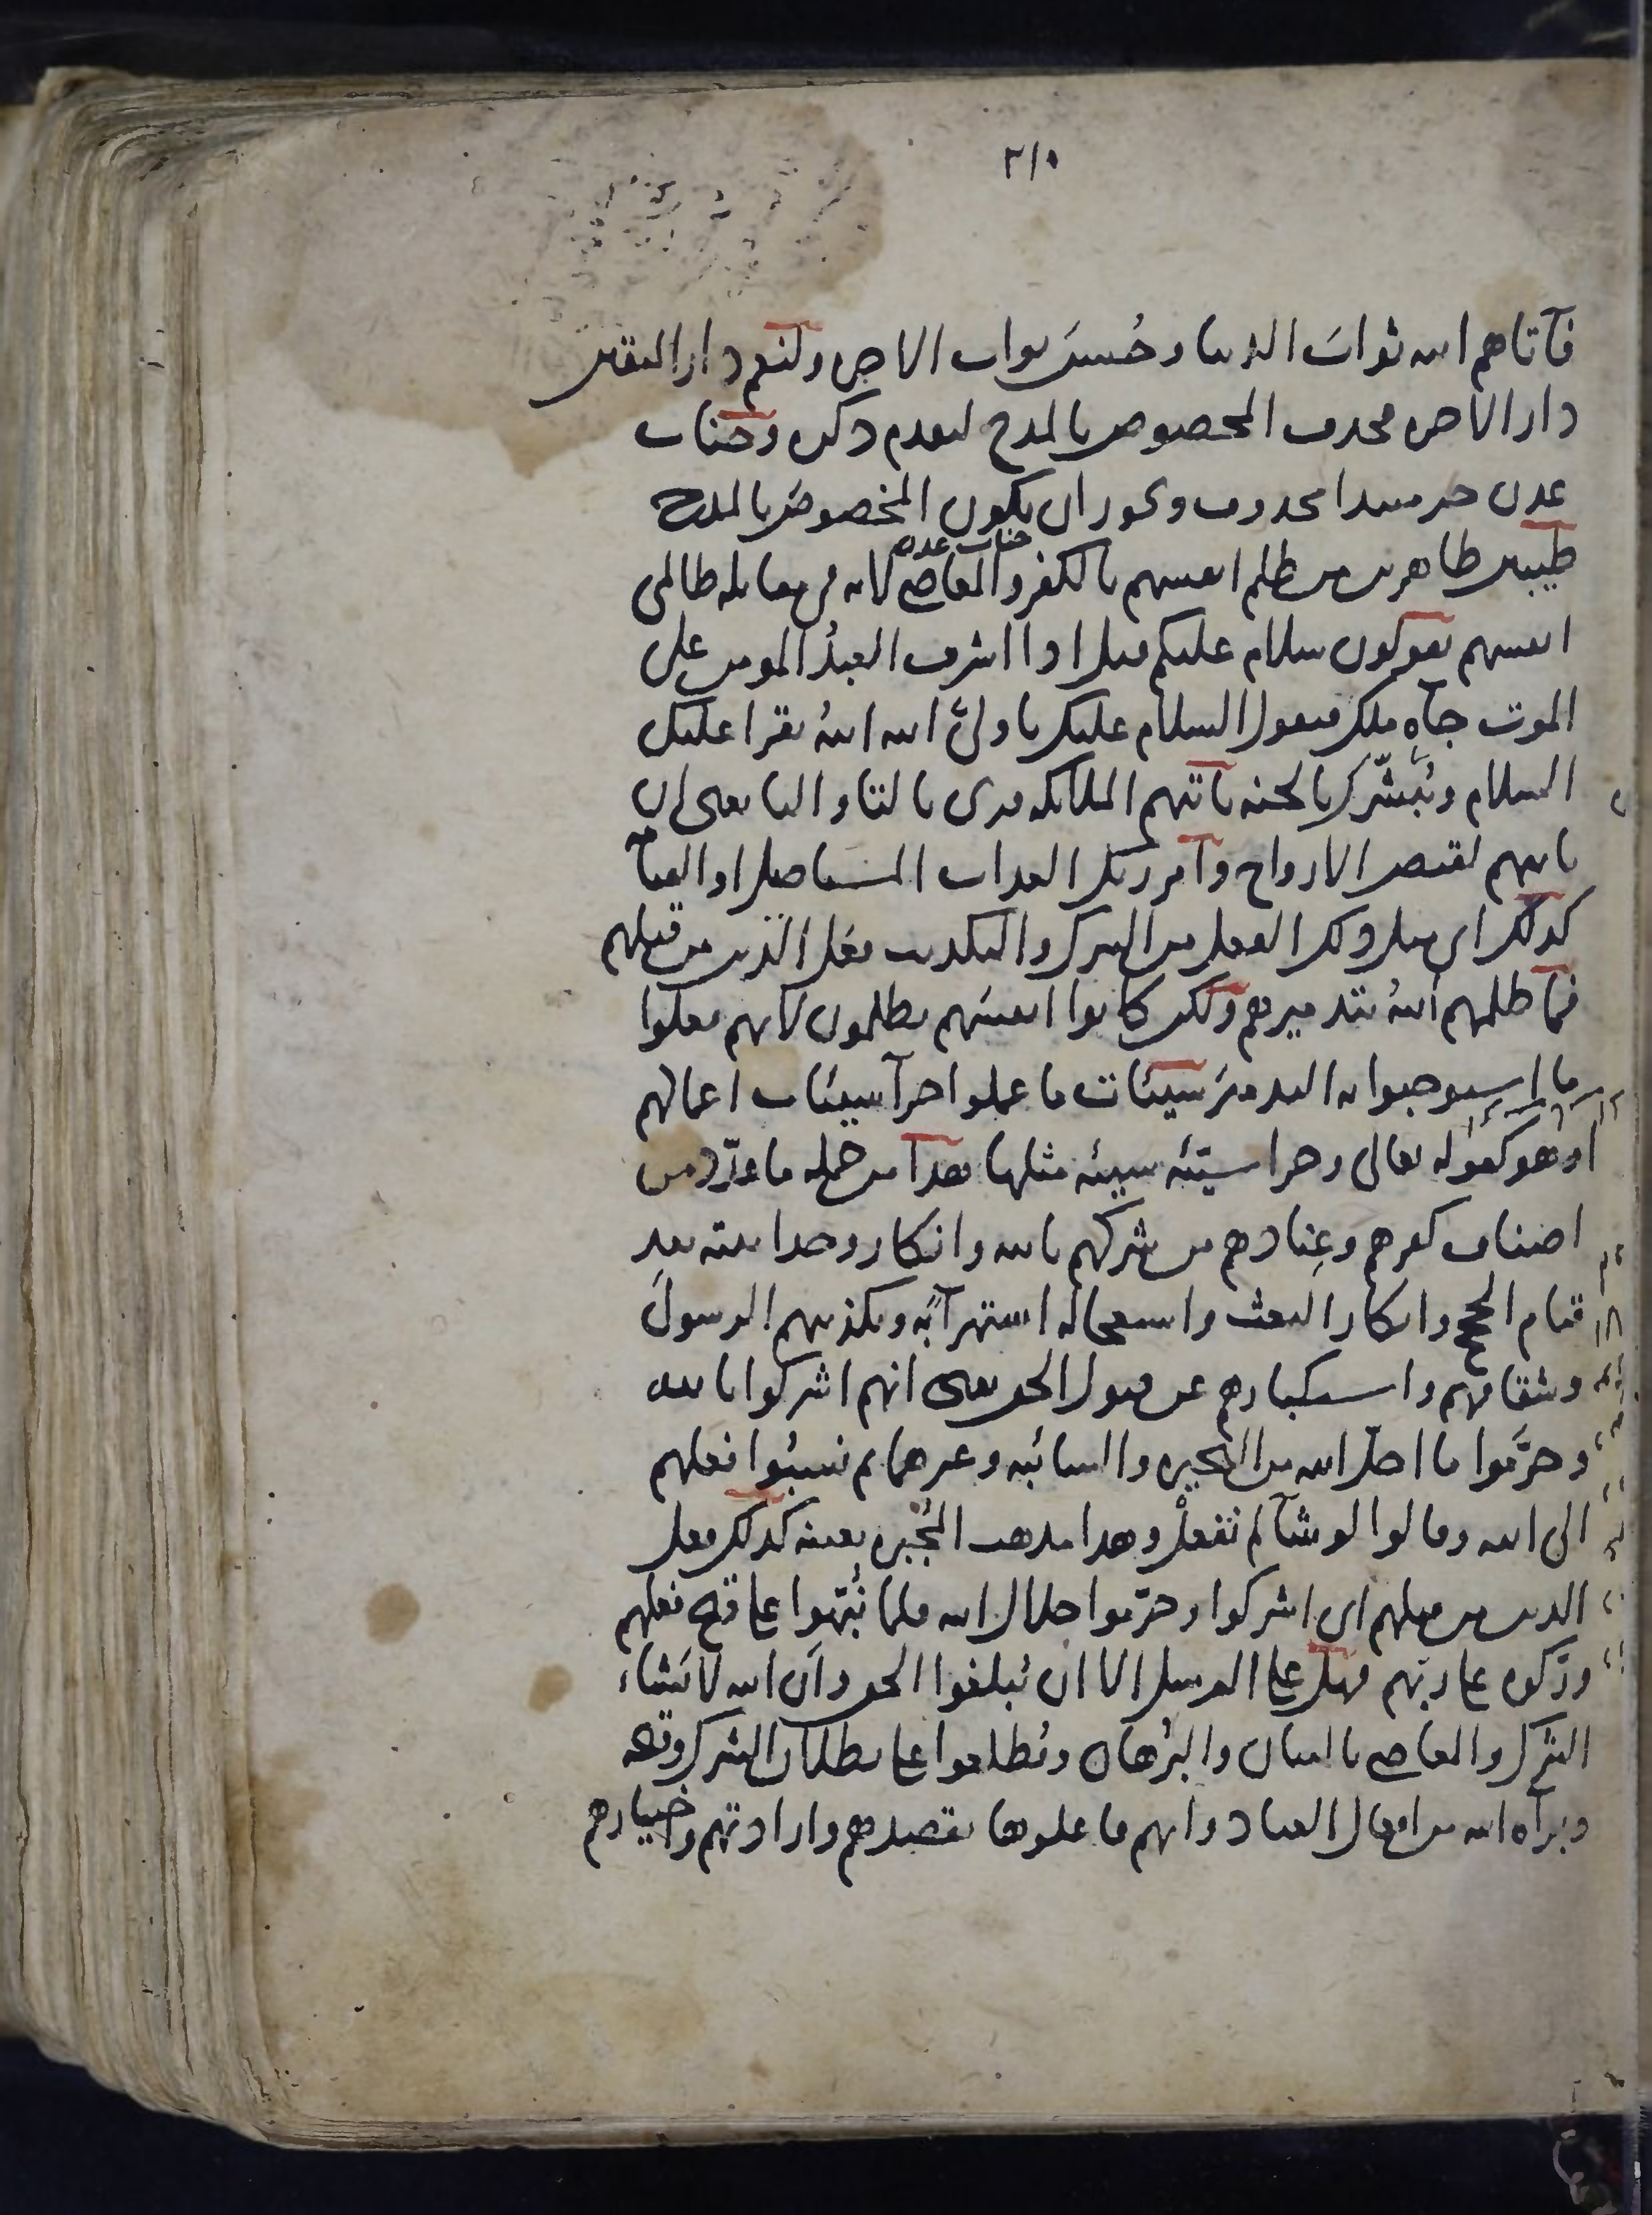 ٢١٠
فآتاهم الله ثوابَ الدنيا وحُسنَ ثواب الاخرة ولنعم دار المتقين
دار الاخرة فحذف المخصوص بالمدح لتقدم ذكره وجنات
عدن خبر مبتدا محذوف ويجوز ان يكون المخصوصَ بالمدح
جنات عدن
طيبين طاهرين من ظلم انفسهم بالكفر والمعاصي لانه في مقابله ظالمي
انفسهم يقولون سلام عليكم قيل اذا اشرف العبدُ المومن على
الموت جآه ملك فيقول السلام عليك يا وليَّ الله اللهُ يقرا عليك
السلام ويُبشّرك بالجنه تاتيهم الملائكه قرى بالتاء واليا يعنى ان
ياتيهم لقبض الارواح وامر ربك العذاب المستاصل او القيامة
كذلك اى مثل ذلك الفعل من الشرك والتكذيب فعل الذين من قبلهم
فما ظلمهم اللهُ بتدميرهم ولكن كانوا انفسَهم يظلمون لانهم فعلوا
ما استوجبوا به التدميرَ سيئات ما عملوا جزآ سيئات اعمالهم
او هو كقوله تعالى وجزا سيّئه سيئه مثلها هذا من جمله ما عدّد من
اصناف كفرهم وعِنادهم من شركهم بالله وانكار وحدانيته بعد
قيام الحجج وانكار البعث واستعجاله استهزآءً به وتكذيبهم الرسولَ
وشقاقهم واستكبارهم عن قبول الحق يعنى انهم اشركوا بالله
وحرَّموا ما احل الله من البحيره والسائبه وغيرهما ثم نسبُوا فعلهم
الى الله وقالوا لو شآ لم نفعلْ وهذا مذهب المُجبره بعينه كذلك فعل
الذين من قبلهم اى اشركوا وحرّموا حلال الله فلما نُبّهوا على قبح فعلهم
ورّكوه على ربّهم فهل على الرسل الا ان يُبلغوا الحق وان الله لا يَشاء
الشرك والمعاصى بالبيان والبُرهان ويُطلعوا على بطلان الشرك وقبحه
وبرآه الله من افعال العباد وانهم فاعلوها بقصدهم وارادتهم واختيارهم